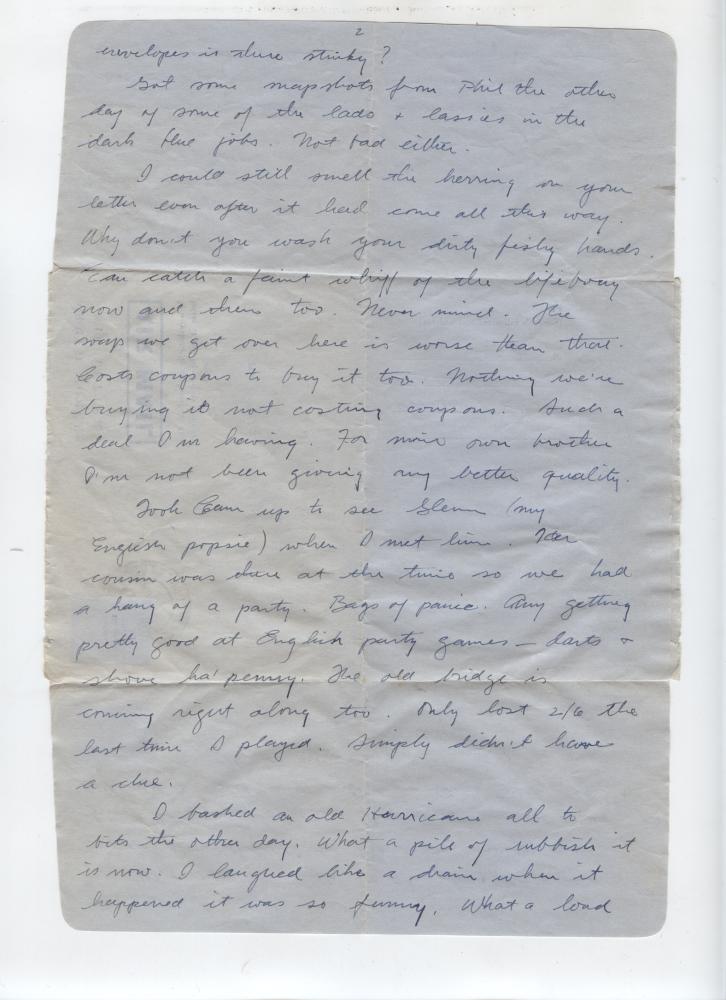 2
envelopes is there stinky?
Got some snapshots from Phil the other
day of some of the lads & lassies in the
dark blue jobs. Not bad either.
I could still smell the herring on your
letter even after it had come all this way.
Why don't you wash your dirty fishy hands.
Can catch a faint whiff of the lifebuoy
now and then too. Never mind. The
soap we get over here is worse than that.
Costs coupons to buy it too. Nothing we're
buying is not costing coupons. Such a
deal I'm having. For mine own brother
I'm not been giving my better quality.
Took Cam up to see Glenn (my
English popsie) when I met him. Her
cousin was there at the time so we had
a bang of a party. Bags of panic. Am getting
pretty good at English party games — darts &
shove ha' penny. The old bridge is
coming right along too. Only lost 2/6 the
last time I played. Simply didn't have
a clue.
I bashed an old Hurricane all to
bits the other day. What a pile of rubbish it
is now. I laughed like a drain when it
happened it was so funny. What a load